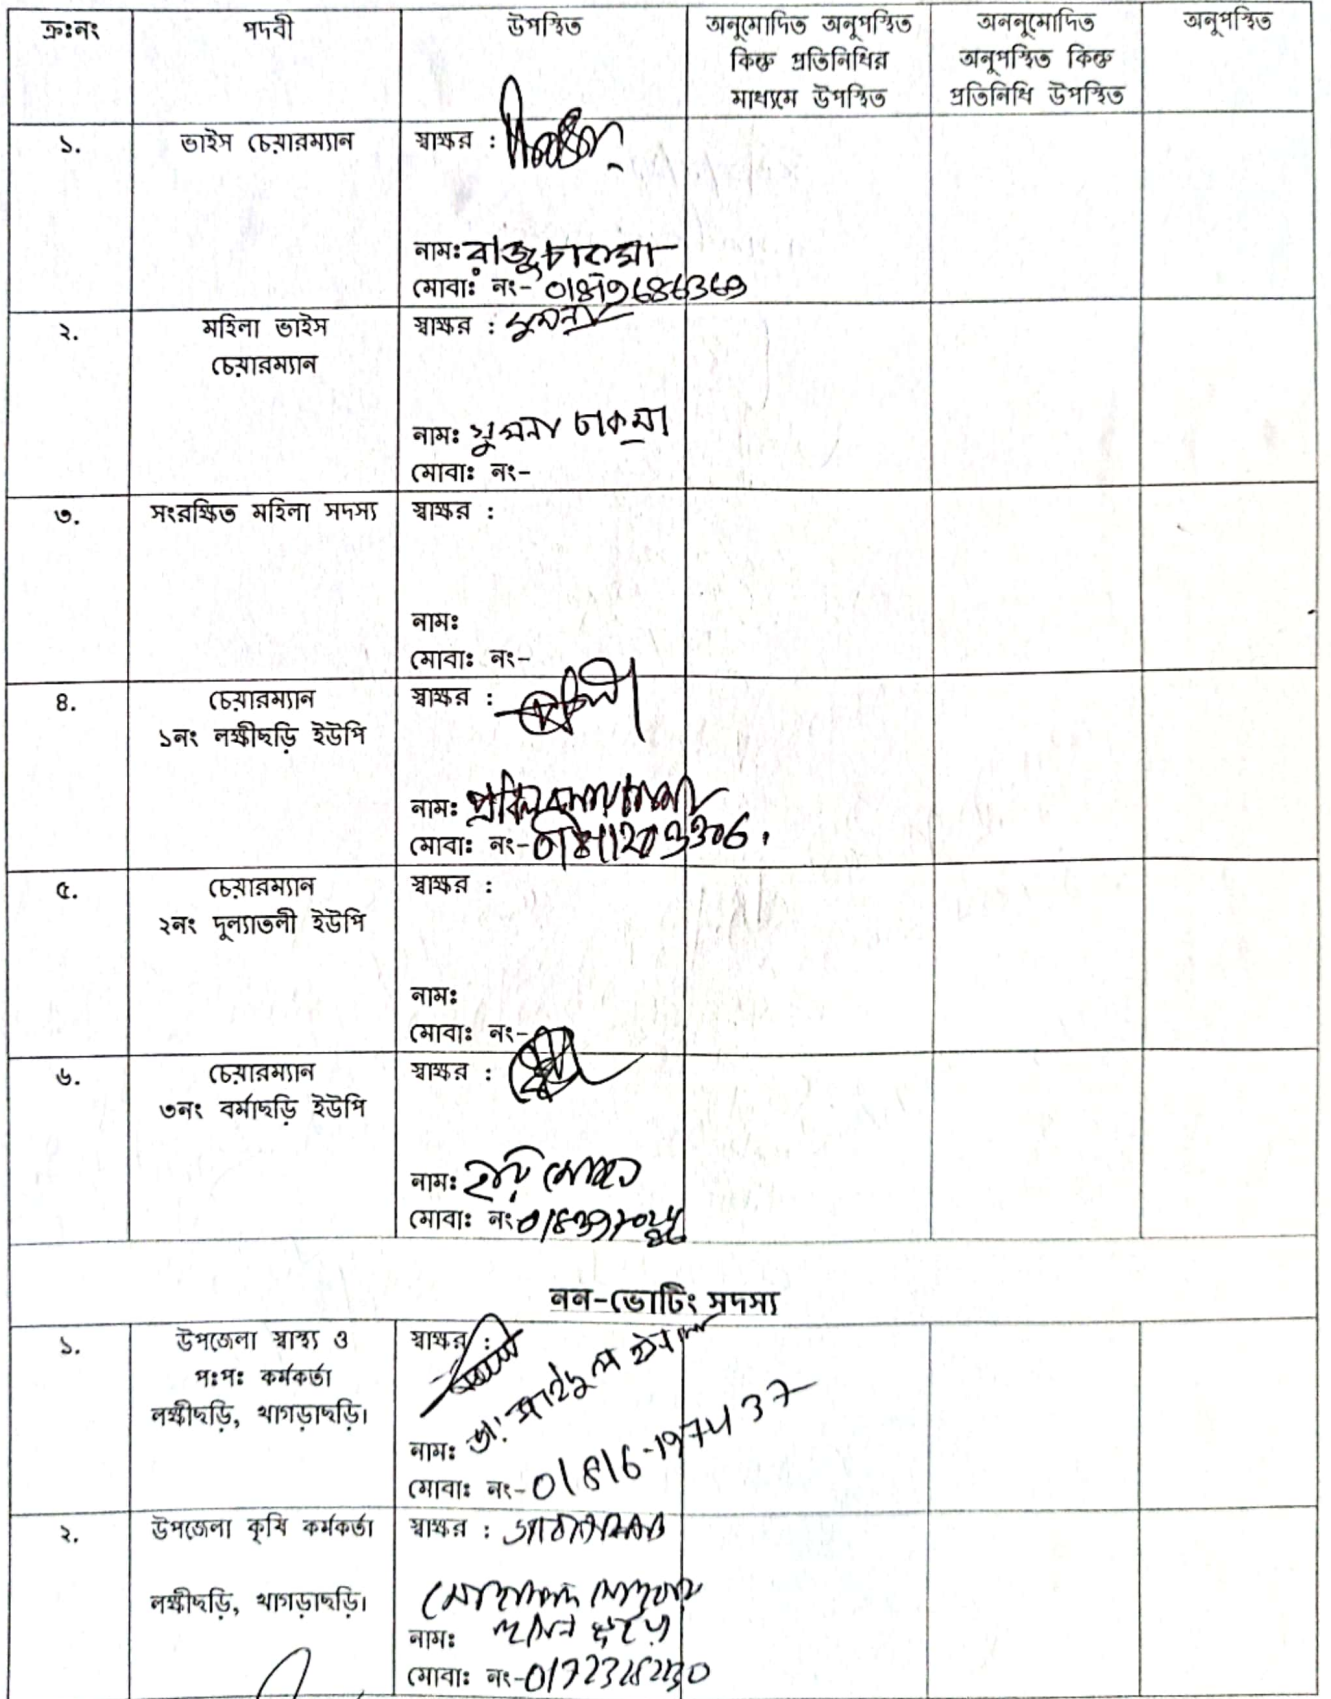 ক্রঃনং
পদবী
উপস্থিত
অনুমোদিত অনুপস্থিত
কিন্তু প্রতিনিধির
মাধ্যমে উপস্থিত
অননুমোদিত
অনুপস্থিত কিন্তু
প্রতিনিধি উপস্থিত
অনুপস্থিত
১.
ভাইস চেয়ারম্যান
স্বাক্ষর :
নামঃ রাজু চাকমা
মোবাঃ নং-
২.
মহিলা ভাইস
চেয়ারম্যান
স্বাক্ষর : সুমনা
নামঃ সুমনা চাকমা
মোবাঃ নং-
৩.
সংরক্ষিত মহিলা সদস্য
স্বাক্ষর :
নামঃ
মোবাঃ নং-
৪.
চেয়ারম্যান
১নং লক্ষীছড়ি ইউপি
স্বাক্ষর :
নামঃ
মোবাঃ নং-
৫.
চেয়ারম্যান
২নং দুল্যাতলী ইউপি
স্বাক্ষর :
নামঃ
মোবাঃ নং-
৬.
চেয়ারম্যান
৩নং বর্মাছড়ি ইউপি
স্বাক্ষর :
নামঃ হরি মোহন
মোবাঃ নং
নন-ভোটিং সদস্য
১.
উপজেলা স্বাস্থ্য ও
পঃপঃ কর্মকর্তা
লক্ষীছড়ি, খাগড়াছড়ি।
স্বাক্ষর :
নামঃ ডা:
মোবাঃ নং-01816-197437
২.
উপজেলা কৃষি কর্মকর্তা
লক্ষীছড়ি, খাগড়াছড়ি।
স্বাক্ষর :
নামঃ
মোবাঃ নং-